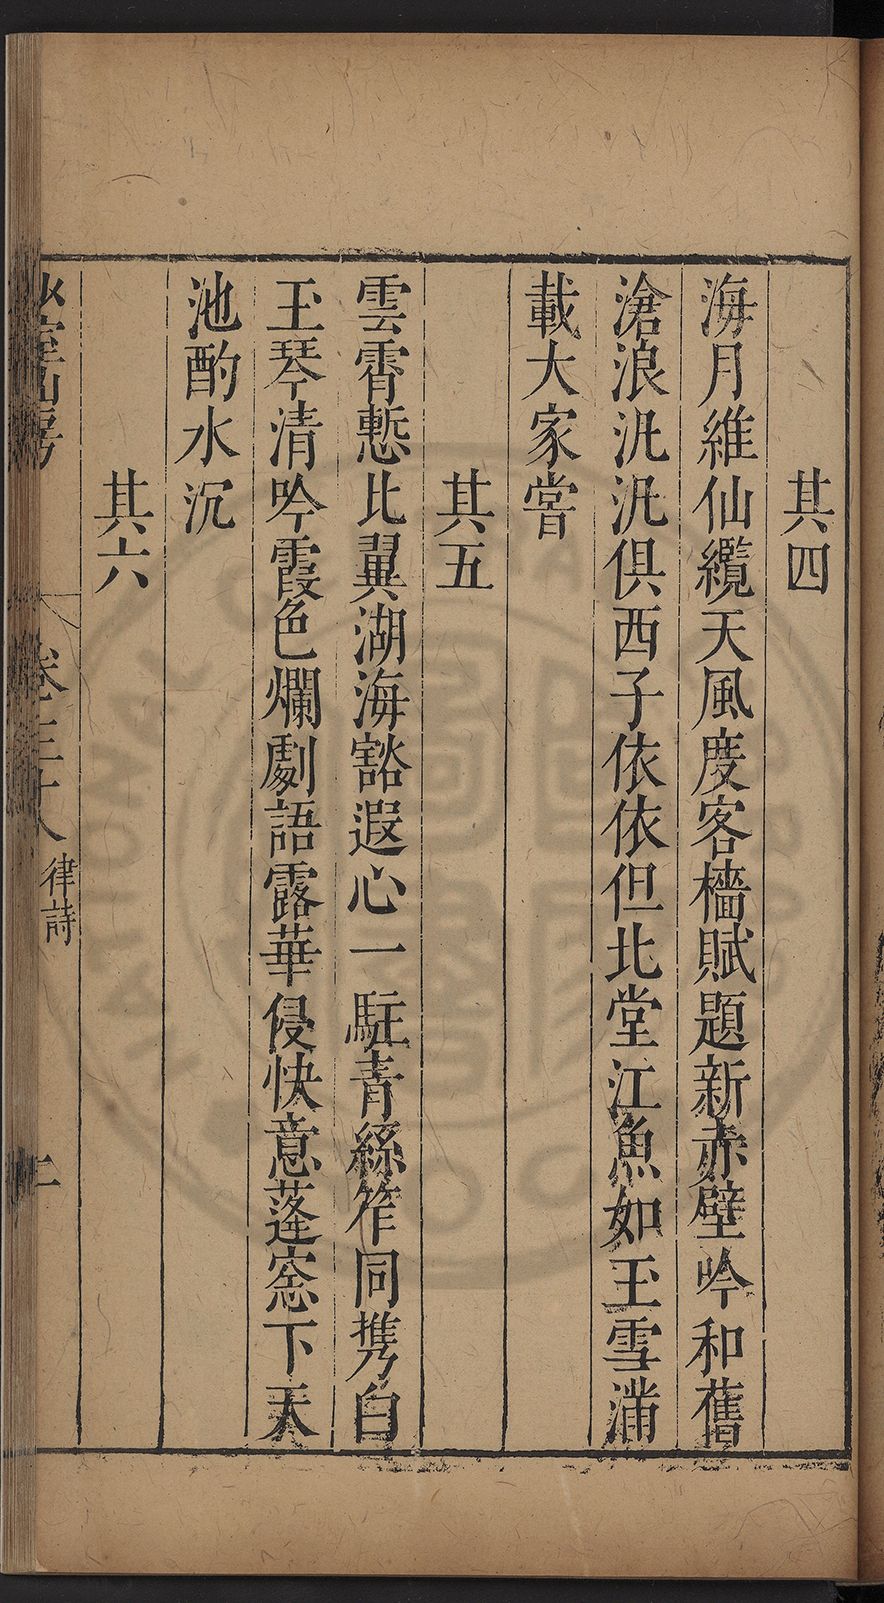 其四
海月維仙纜天風度客檣賦題新赤壁吟和舊
滄浪汎汎俱西子依依但北堂江魚如玉雪滿
載大家嘗
其五
雲霄慙比翼湖海豁遐心一駐青絲笮同攜白
玉琴清吟霞色爛劇語露華侵快意蓬窓下天
池酌水沉
其六
山房
卷三十八 律詩